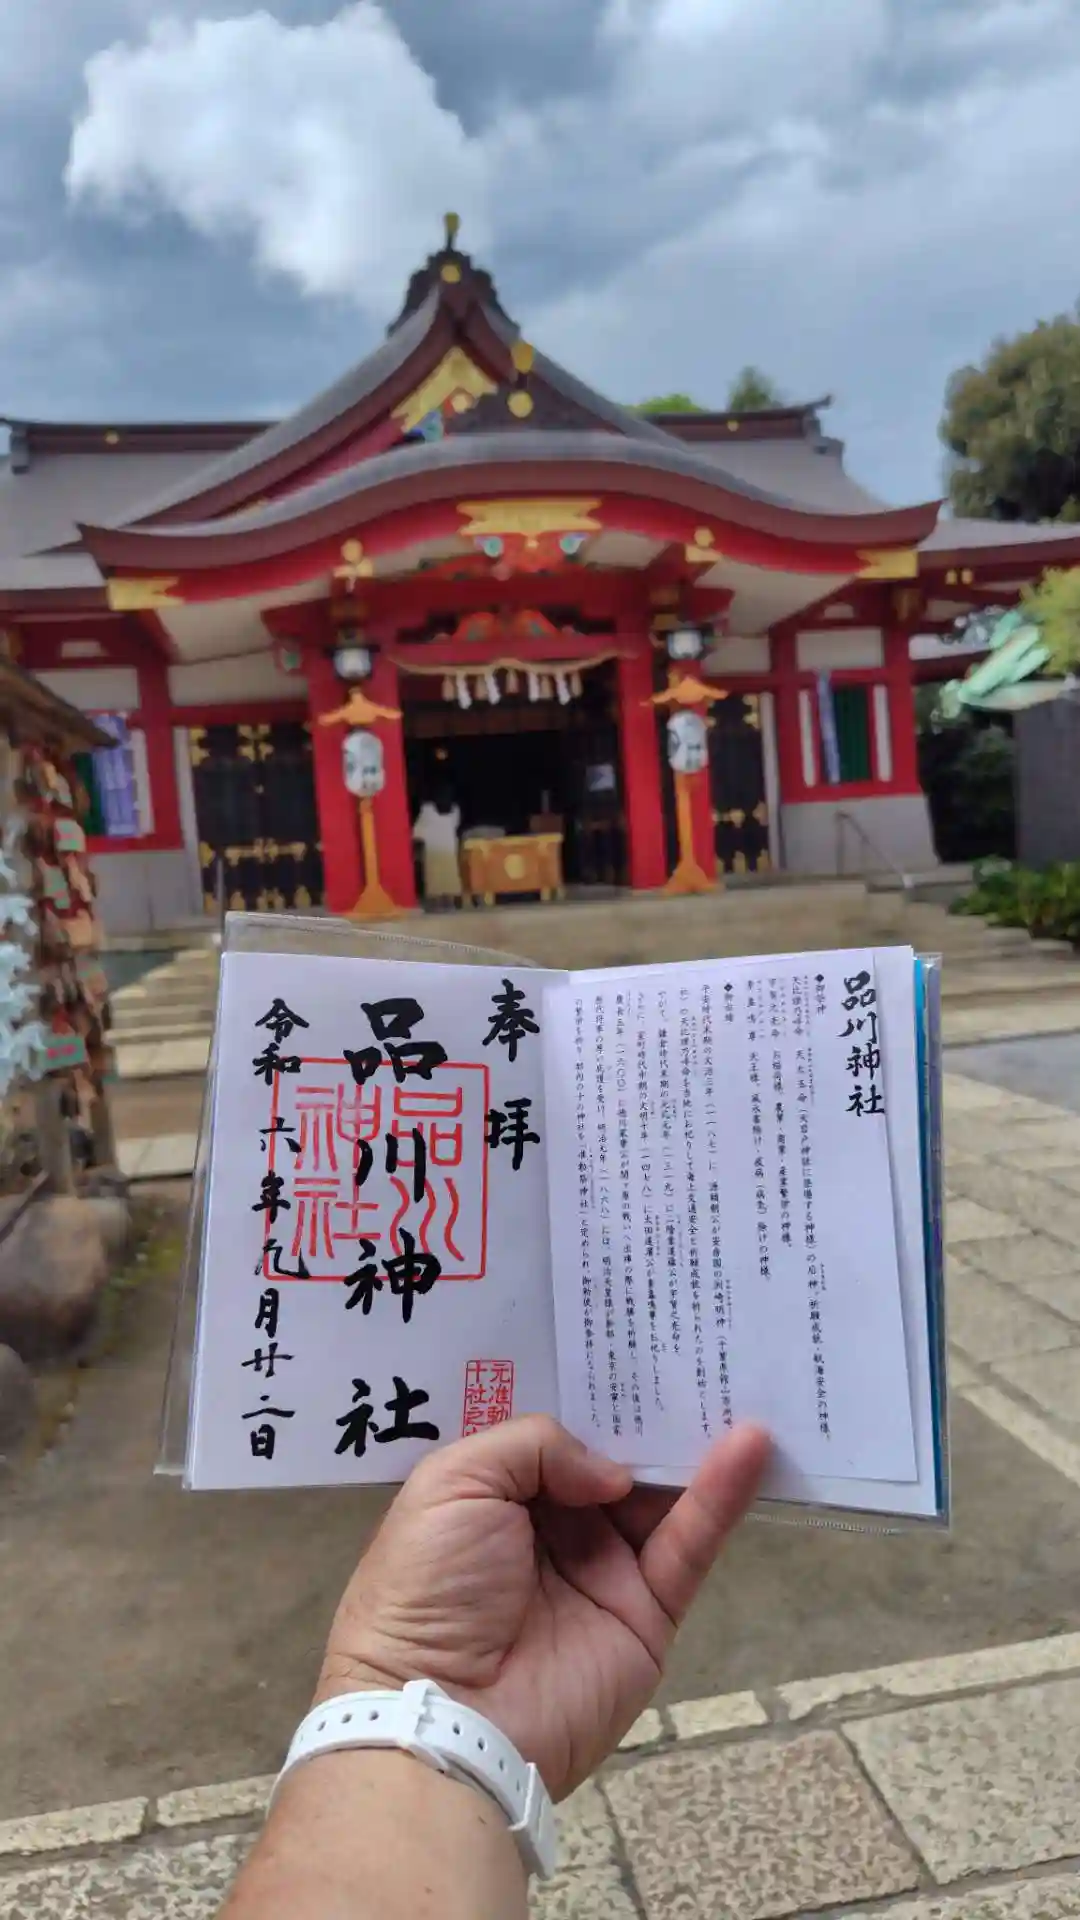 品川神社
◆御祭神
天比理乃咩命 天太玉命(天岩戸神話に登場する神様)の后神。祈願成就・航海安全の神様。
宇賀之売命 お稲荷様。農業・商業・産業繁栄の神様。
素盞嗚尊 天王様。風水害除け・疫病(病気)除けの神様。
◆御由緒
平安時代末期の文治三年(一一八七)に、源頼朝公が安房国の洲崎明神
社)の天比理乃咩命を当地にお祀りして海上交通安全と祈願成就を祈られたのを創始とします。
やがて、鎌倉時代末期の元応元年(一三一九)に二階堂道蘊公が宇賀之売命を、
さらに、室町時代中期の文明十年(一四七八)に太田道灌公が素盞嗚尊をお祀りしました。
慶長五年(一六〇〇)に徳川家康公が関ヶ原の戦いへ出陣の際に戦勝を祈願し、その後は徳川
歴代将軍の厚い庇護を受け、明治元年(一八六八)には、明治天皇様が新都・東京の安寧と国家
の繁栄を祈り、都内の十の神社を「准勅祭神社」と定められ、御勅使が御参拝になられました。
奉拝
品川神社
令和六年九月廿二日
品川
神社
元准勅
十社之